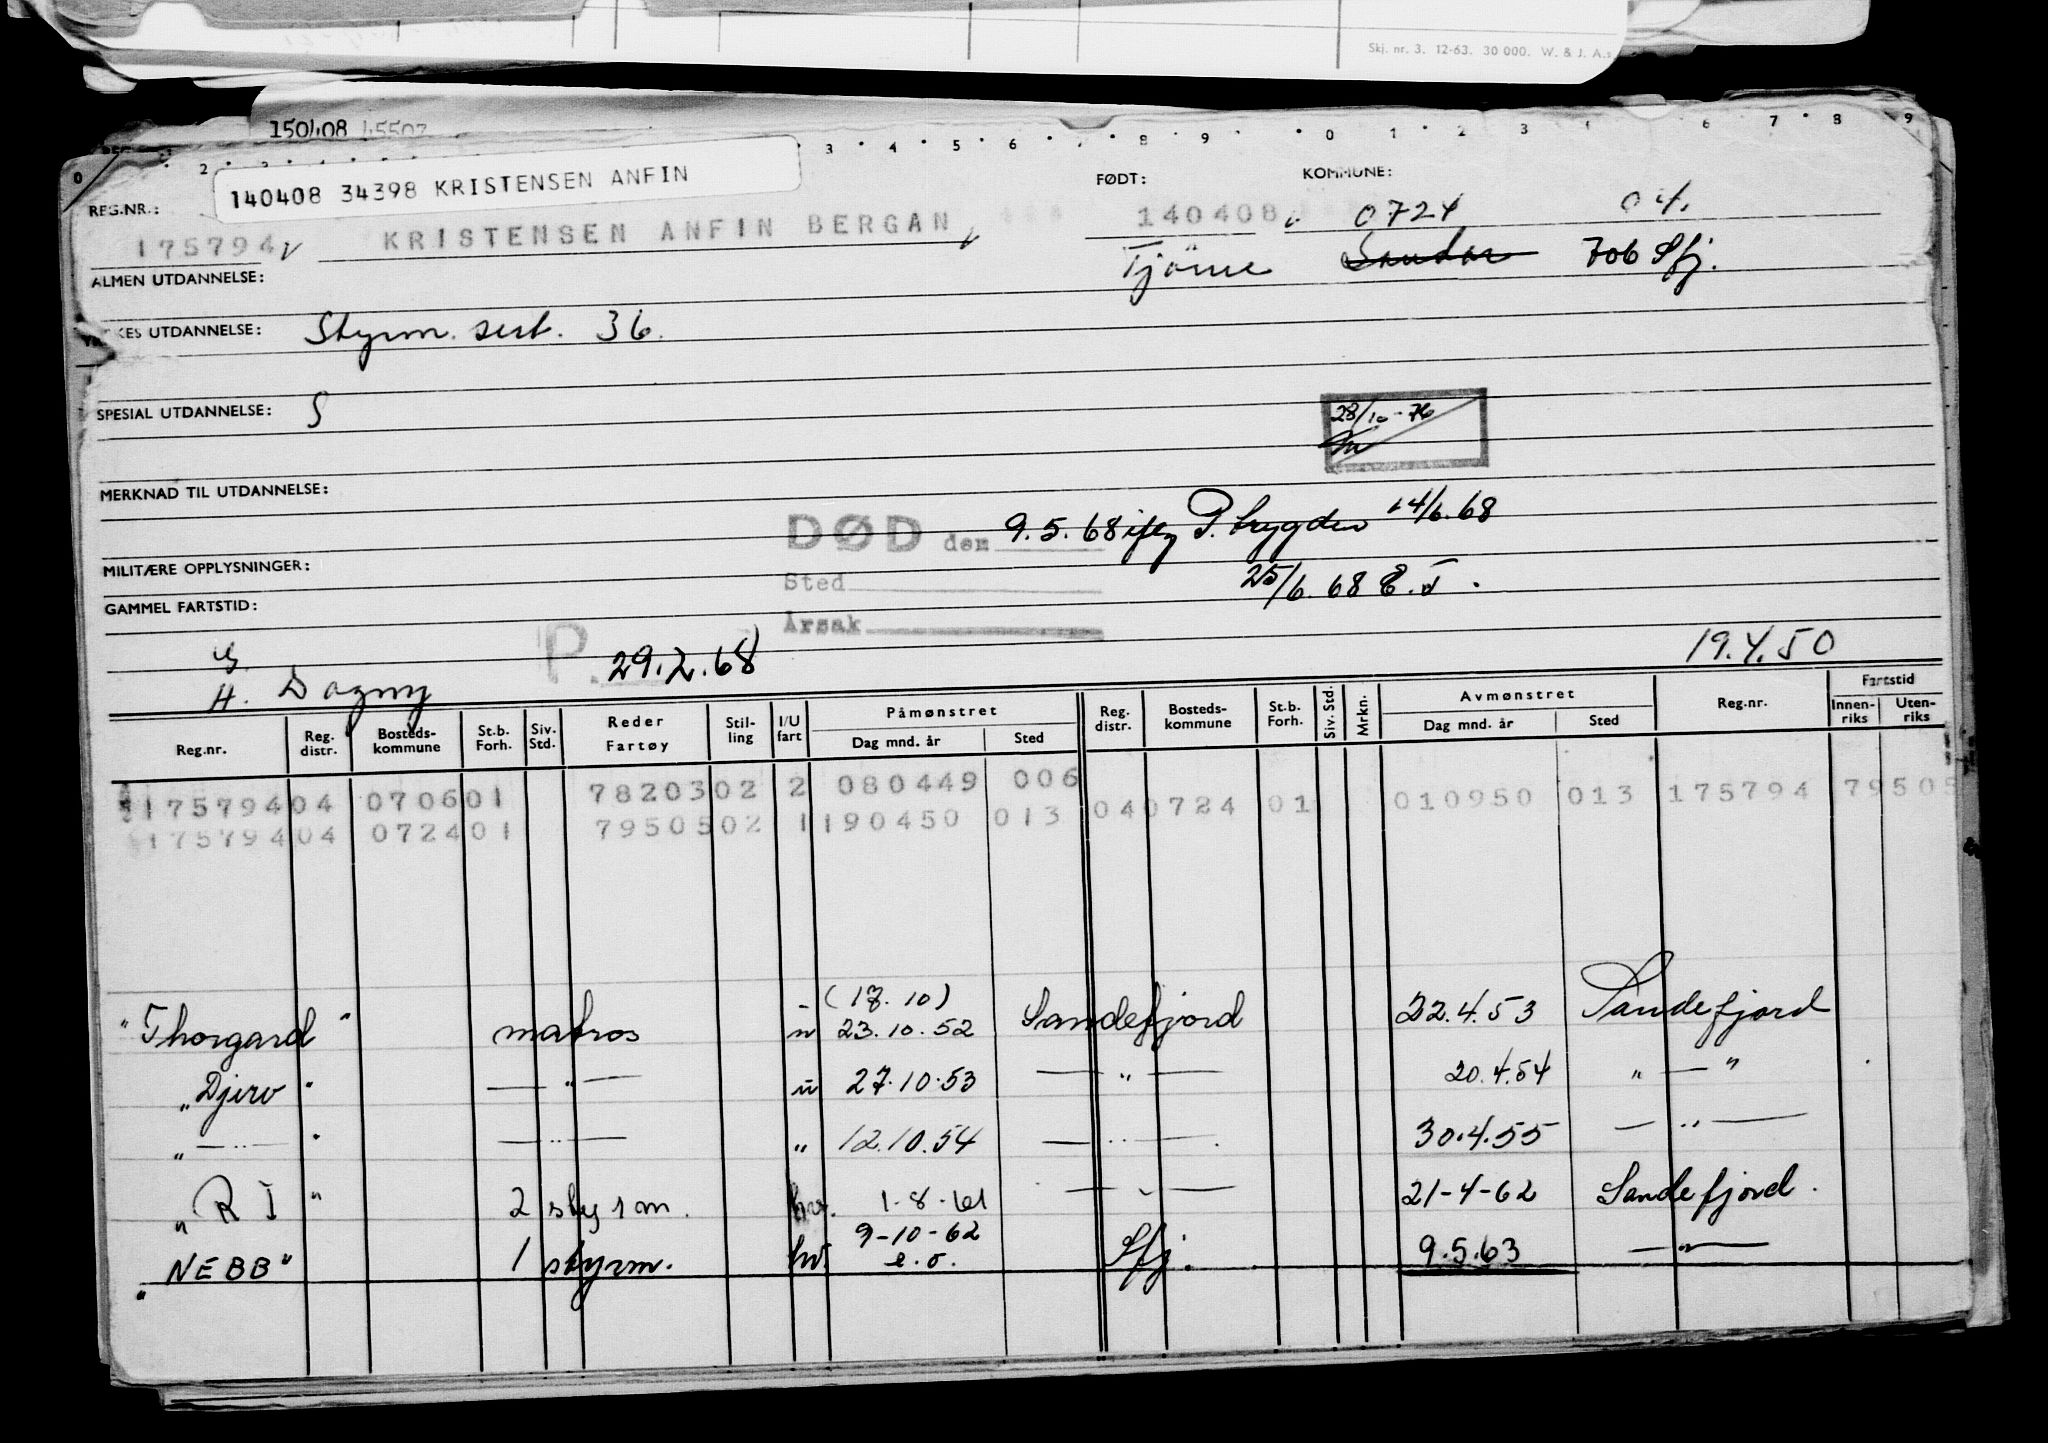 Skj. nr. 3. 12-63. 30 000. W. & J. A.s
150408 45507
140408 34398 KRISTENSEN ANFIN
FØDT: KOMMUNE:
REG.NR.:
175794 KRISTENSEN ANFIN BERGAN 140408 0724 04.
Tjöme Sandar 706 Sfj.
ALMEN UTDANNELSE:
KES UTDANNELSE: Styrm. sert. 36.
SPESIAL UTDANNELSE: S
28/10-76
MERKNAD TIL UTDANNELSE:
DØD den 9.5.68 ifлg P. trygden 14/6.68
MILITÆRE OPPLYSNINGER:
Sted 25/6.68
GAMMEL FARTSTID:
Årsak
G. P. 29.2.68 19.4.50
H. Dagny
Reg.nr. Reg. distr. Bosteds- kommune St.b. Forh. Siv. Std. Reder Fartøy Stil- ling I/U fart Påmønstret Dag mnd. år Sted Reg. distr. Bosteds- kommune St.b. Forh. Siv. Std. Mrkn. Avmønstret Dag mnd. år Sted Reg.nr. Fartstid Innen- riks Uten- riks
175794 04 0706 01 78203 02 2 080449 006 04 0724 01 010950 013 175794 79505
175794 04 0724 01 79505 02 1 190450 013
(18.10)
"Thorgard" matros u 23.10.52 Sandefjord 22.4.53 Sandefjord
"Djerv" — " — u 27.10.53 — " — 20.4.54 " — "
" — " — " — " — " 12.10.54 — " — 30.4.55 — " —
"R I" 2 styrm. hv. 1-8-61 — " — 21-4-62 Sandefjord.
"NEBB" 1 styrm. hv. 9-10-62 Sfj. 9.5.63 — " —
e.o.